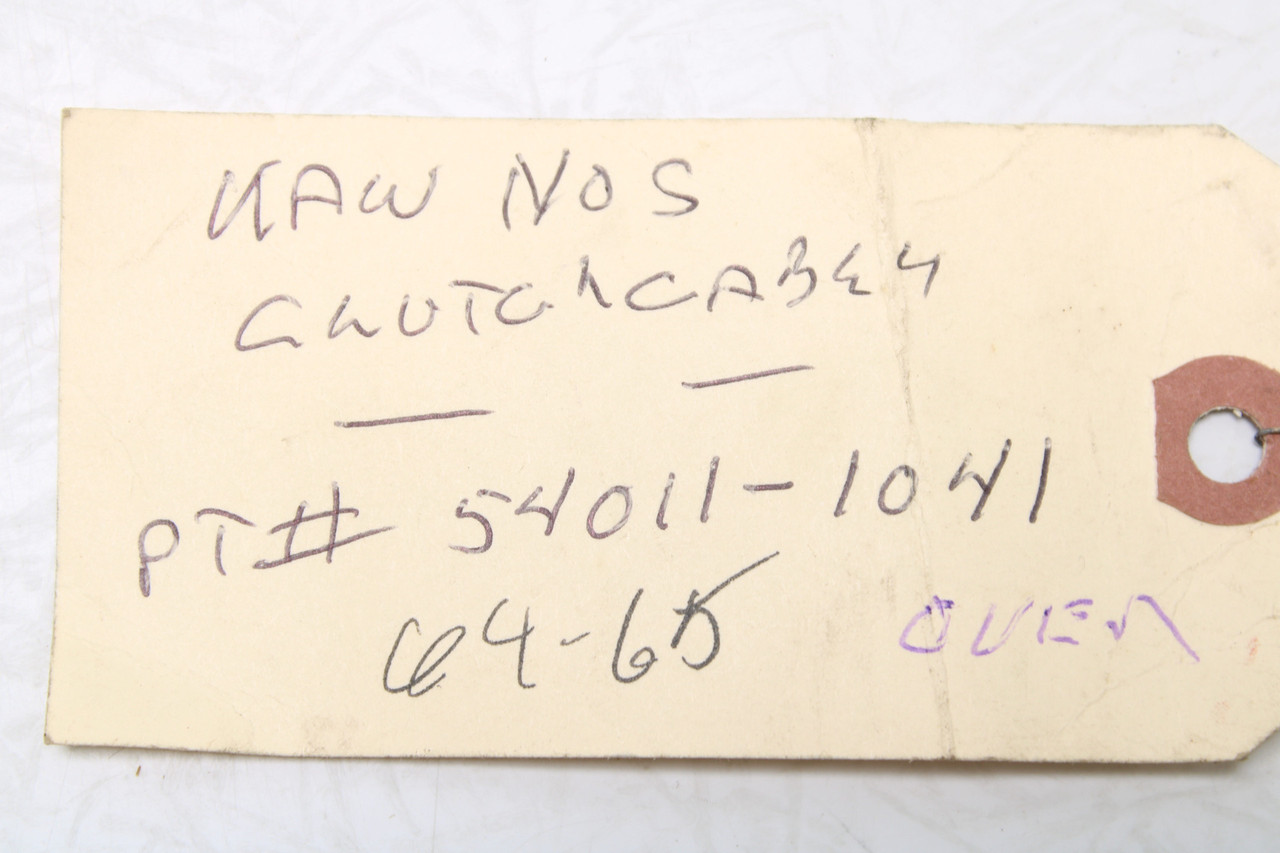 KAW NOS
CLUTCh CABLE
PT# 54011-1041
64-65
OVER